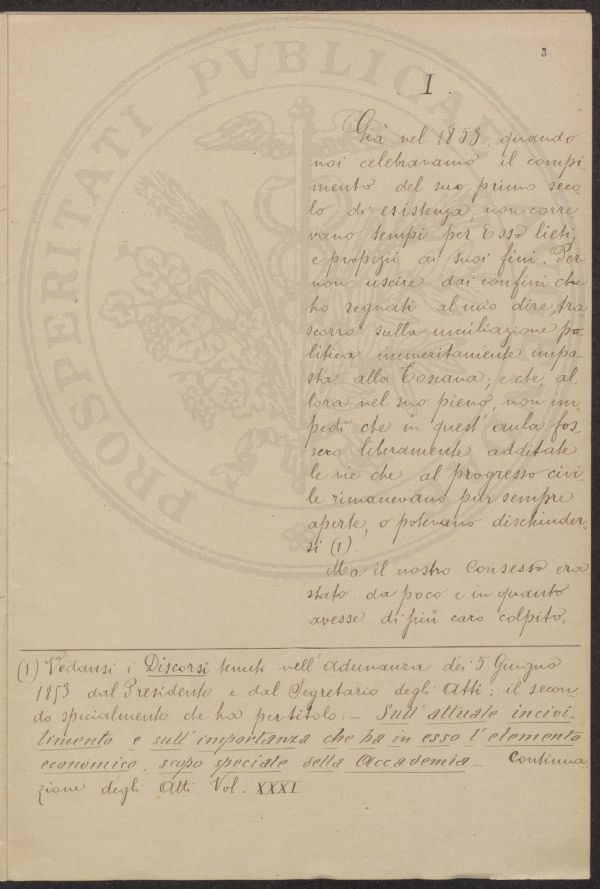 3
I.
Già nel 1853 quando
noi celebravamo il compi-
mento del suo primo seco-
lo di esistenza non corre
vano tempi per Esso lieti,
e propizii ai suoi fini. Per
non uscire dai confini che
ho segnati al mio dire tra
scorro sulla umiliazione po-
litica immeritamente impo-
sta alla Toscana; e che, al
lora nel suo pieno, non im-
pedì che in quest'aula fos-
sero liberamente additate
le vie che al progresso civi-
le rimanevano pur sempre
aperte, o potevano dischiuder-
si (1).
Ma il nostro Consesso era
stato da poco e in quanto
avesse di più caro colpito.
(1) Vedansi i Discorsi tenuti nell'adunanza dei 5 Giugno
1853 dal Presidente e dal Segretario degli Atti; il secon-
do specialmente che ha per titolo. – Sull'attuale incivi-
limento e sull'importanza che ha in esso l'elemento
economico, scopo speciale della Accademia – Continua
zione degli Atti Vol. XXXI
PROSPERITATI PVBLICAE